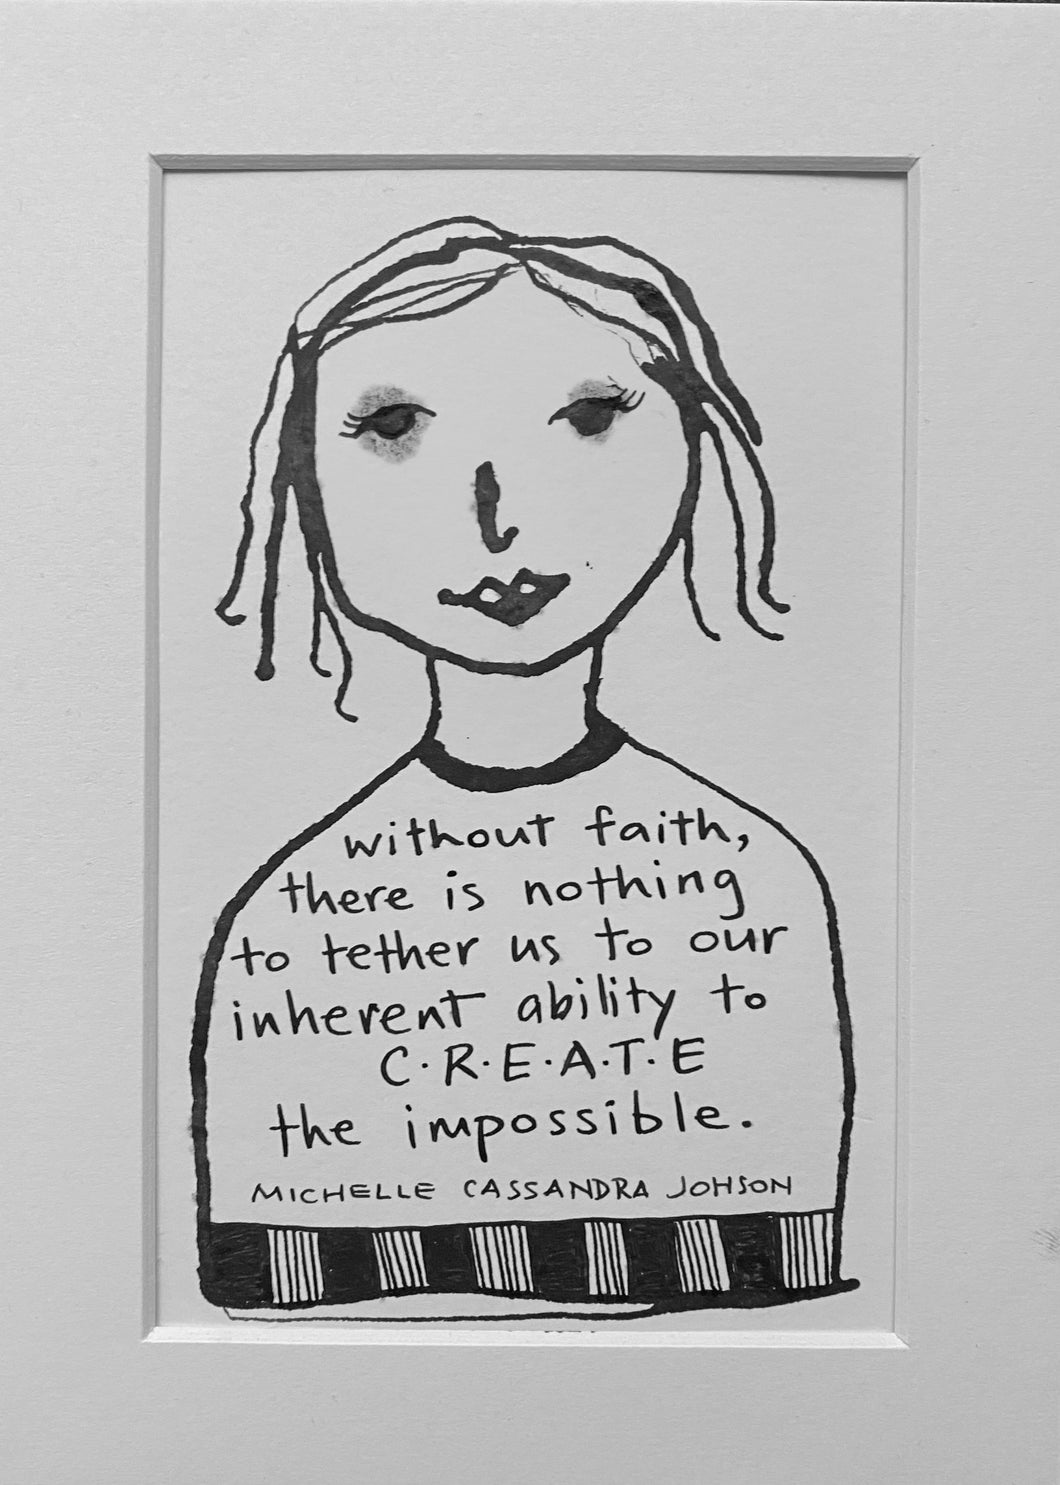 without faith,
there is nothing
to tether us to our
inherent ability to
C·R·E·A·T·E
the impossible.
MICHELLE CASSANDRA JOHSON